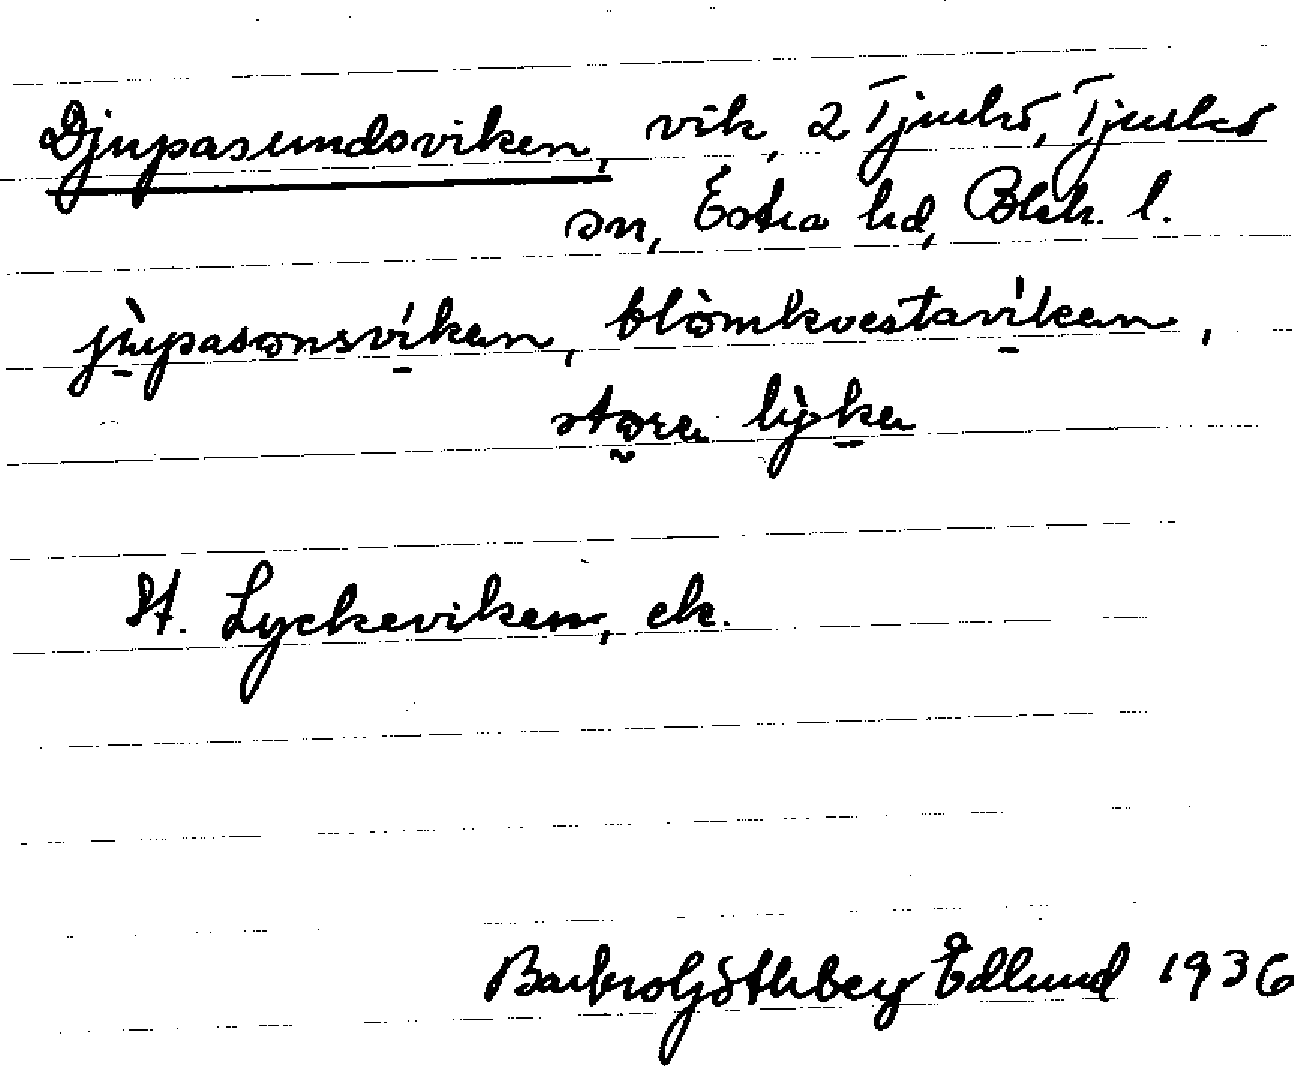 Djupasundsviken, vik, 2 Tjurkö, Tjurkö
sn, Östra hd, Blek. l.
jùpasonsvíken, blòmkvestavíken,
stora lỳka
St. Lyckeviken, ek.
Barbro Göthberg Edlund 1936